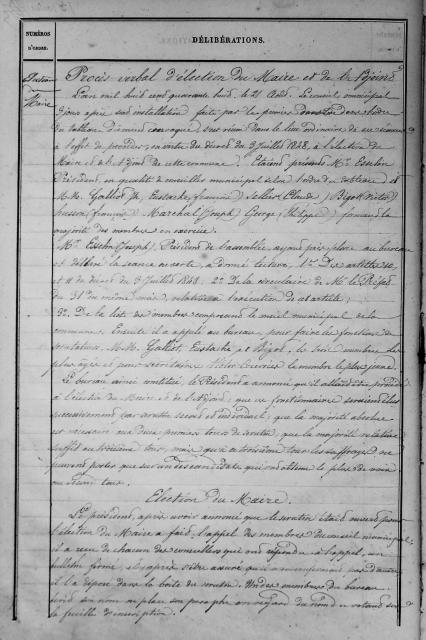 NUMÉROS
D'ORDRE.
DÉLIBÉRATIONS.
Election
Maire
Procès verbal d'élection du Maire et de l'adjoint
L'an mil huit cent quarante huit, le 21 Août. Le conseil municipal
jours après son installation faite par le premier dans l'ordre
du tableau dûment convoqué, s'est réuni dans le lieu ordinaire de ses séances
à l'effet de procéder, en vertu du décret du 3 juillet 1848, à l'élection du
Maire et de l'adjoint de cette commune. Etaient présents Mr.
Président, en qualité de conseiller municipal selon l'ordre du tableau et
M.M. Galliot, Eustache, (françois) Sellier (Claude) Bigot
(françois) Marchal (Joseph) George (Philippe) formant la
majorité des membres en exercice.
Mr. (Joseph), Président de l'assemblée, ayant pris place au bureau
et déclaré la séance ouverte, a donné lecture, 1o. Des articles 10
et 11 du décret du 3 Juillet 1848. 2o. De la circulaire de Mr. le Préfet
du 31 du même mois, relative à l'exécution de cet article;
3o. De la liste des membres composant le conseil municipal de la
commune. Ensuite il a appelé au bureau, pour faire les fonctions de
scrutateurs, M.M. Galliot, Eustache et Bigot, les trois membres les
plus âgés et pour secrétaire le membre le plus jeune.
Le bureau ainsi constitué, le Président a annoncé qu'il allait être procédé
à l'élection du Maire et de l'adjoint; que ces fonctionnaires seraient élus
successivement par scrutin secret et individuel; que la majorité absolue
est nécessaire aux deux premiers tours de scrutin, que la majorité relative
suffit au troisième tour, mais qu'au troisième tour les suffrages ne
peuvent porter que sur un des candidats qui ont obtenu le plus de voix
au tour.
Election du Maire.
Le président, après avoir annoncé que le scrutin était ouvert pour
l'élection du Maire a fait l'appel des membres du conseil municipal;
il a reçu de chacun des conseillers qui ont répondu à l'appel, un
bulletin fermé, et après s'être assuré qu'il n'en renfermait pas d'autre
il l'a déposé dans la boîte du scrutin. Un des membres du bureau
son nom ou plus son paraphe en regard du nom du votant sur
la feuille d'inscription.